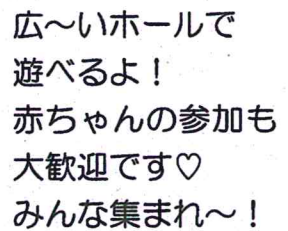 広～いホールで
遊べるよ！
赤ちゃんの参加も
大歓迎です♡
みんな集まれ～！